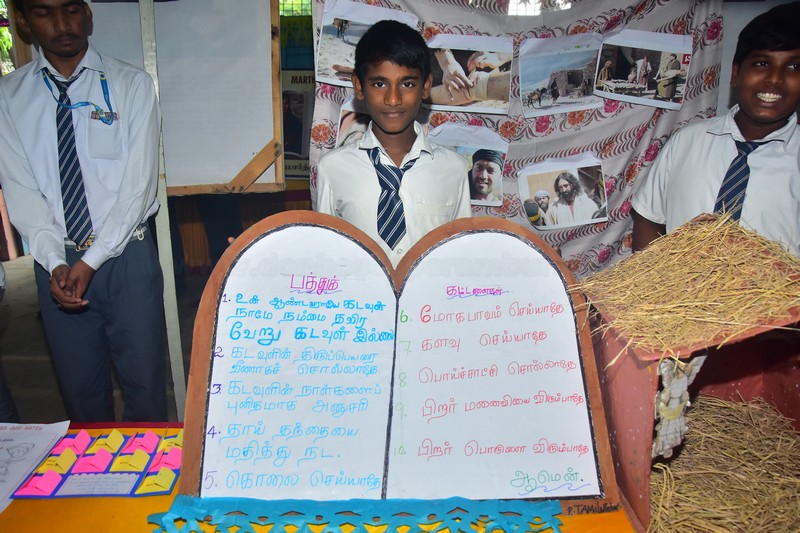 MART
பத்துக்
1. உன் ஆண்டவராகிய கடவுள்
நாமே நம்மை தவிர
வேறு கடவுள் இல்லை
2 கடவுளின் திருப்பெயரை
வீணாகச் சொல்லாதே
3. கடவுளின் நாள்களைப்
புனிதமாக அனுசரி
4. தாய் தந்தையை
மதித்து நட.
5. கொலை செய்யாதே
கட்டளைகள்
6 மோகபாவம் செய்யாதே
7 களவு செய்யாதே
8 பொய்ச்சாட்சி சொல்லாதே
9. பிறர் மனைவியை விரும்பாதே
10 பிறர் பொருளை விரும்பாதே
ஆமென்.